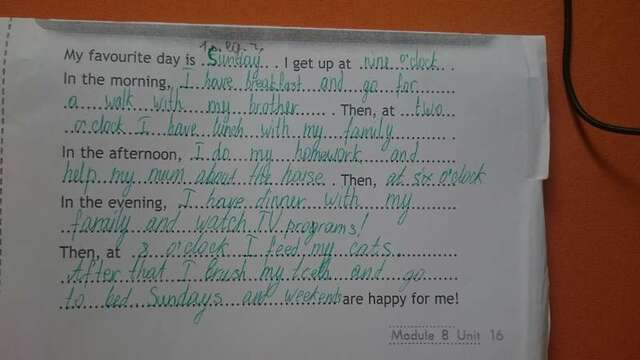 My favourite day is Sunday. I get up at nine o'clock.
In the morning, I have breakfast and go for
a walk with my brother. Then, at two
o'clock I have lunch with my family.
In the afternoon, I do my homework and
help my mum about the house. Then, at six o'clock
In the evening, I have dinner with my
family and watch TV programs!
Then, at 8 o'clock I feed my cats.
After that I brush my teeth and go
to bed Sundays and weekends are happy for me!
Module 8 Unit 16